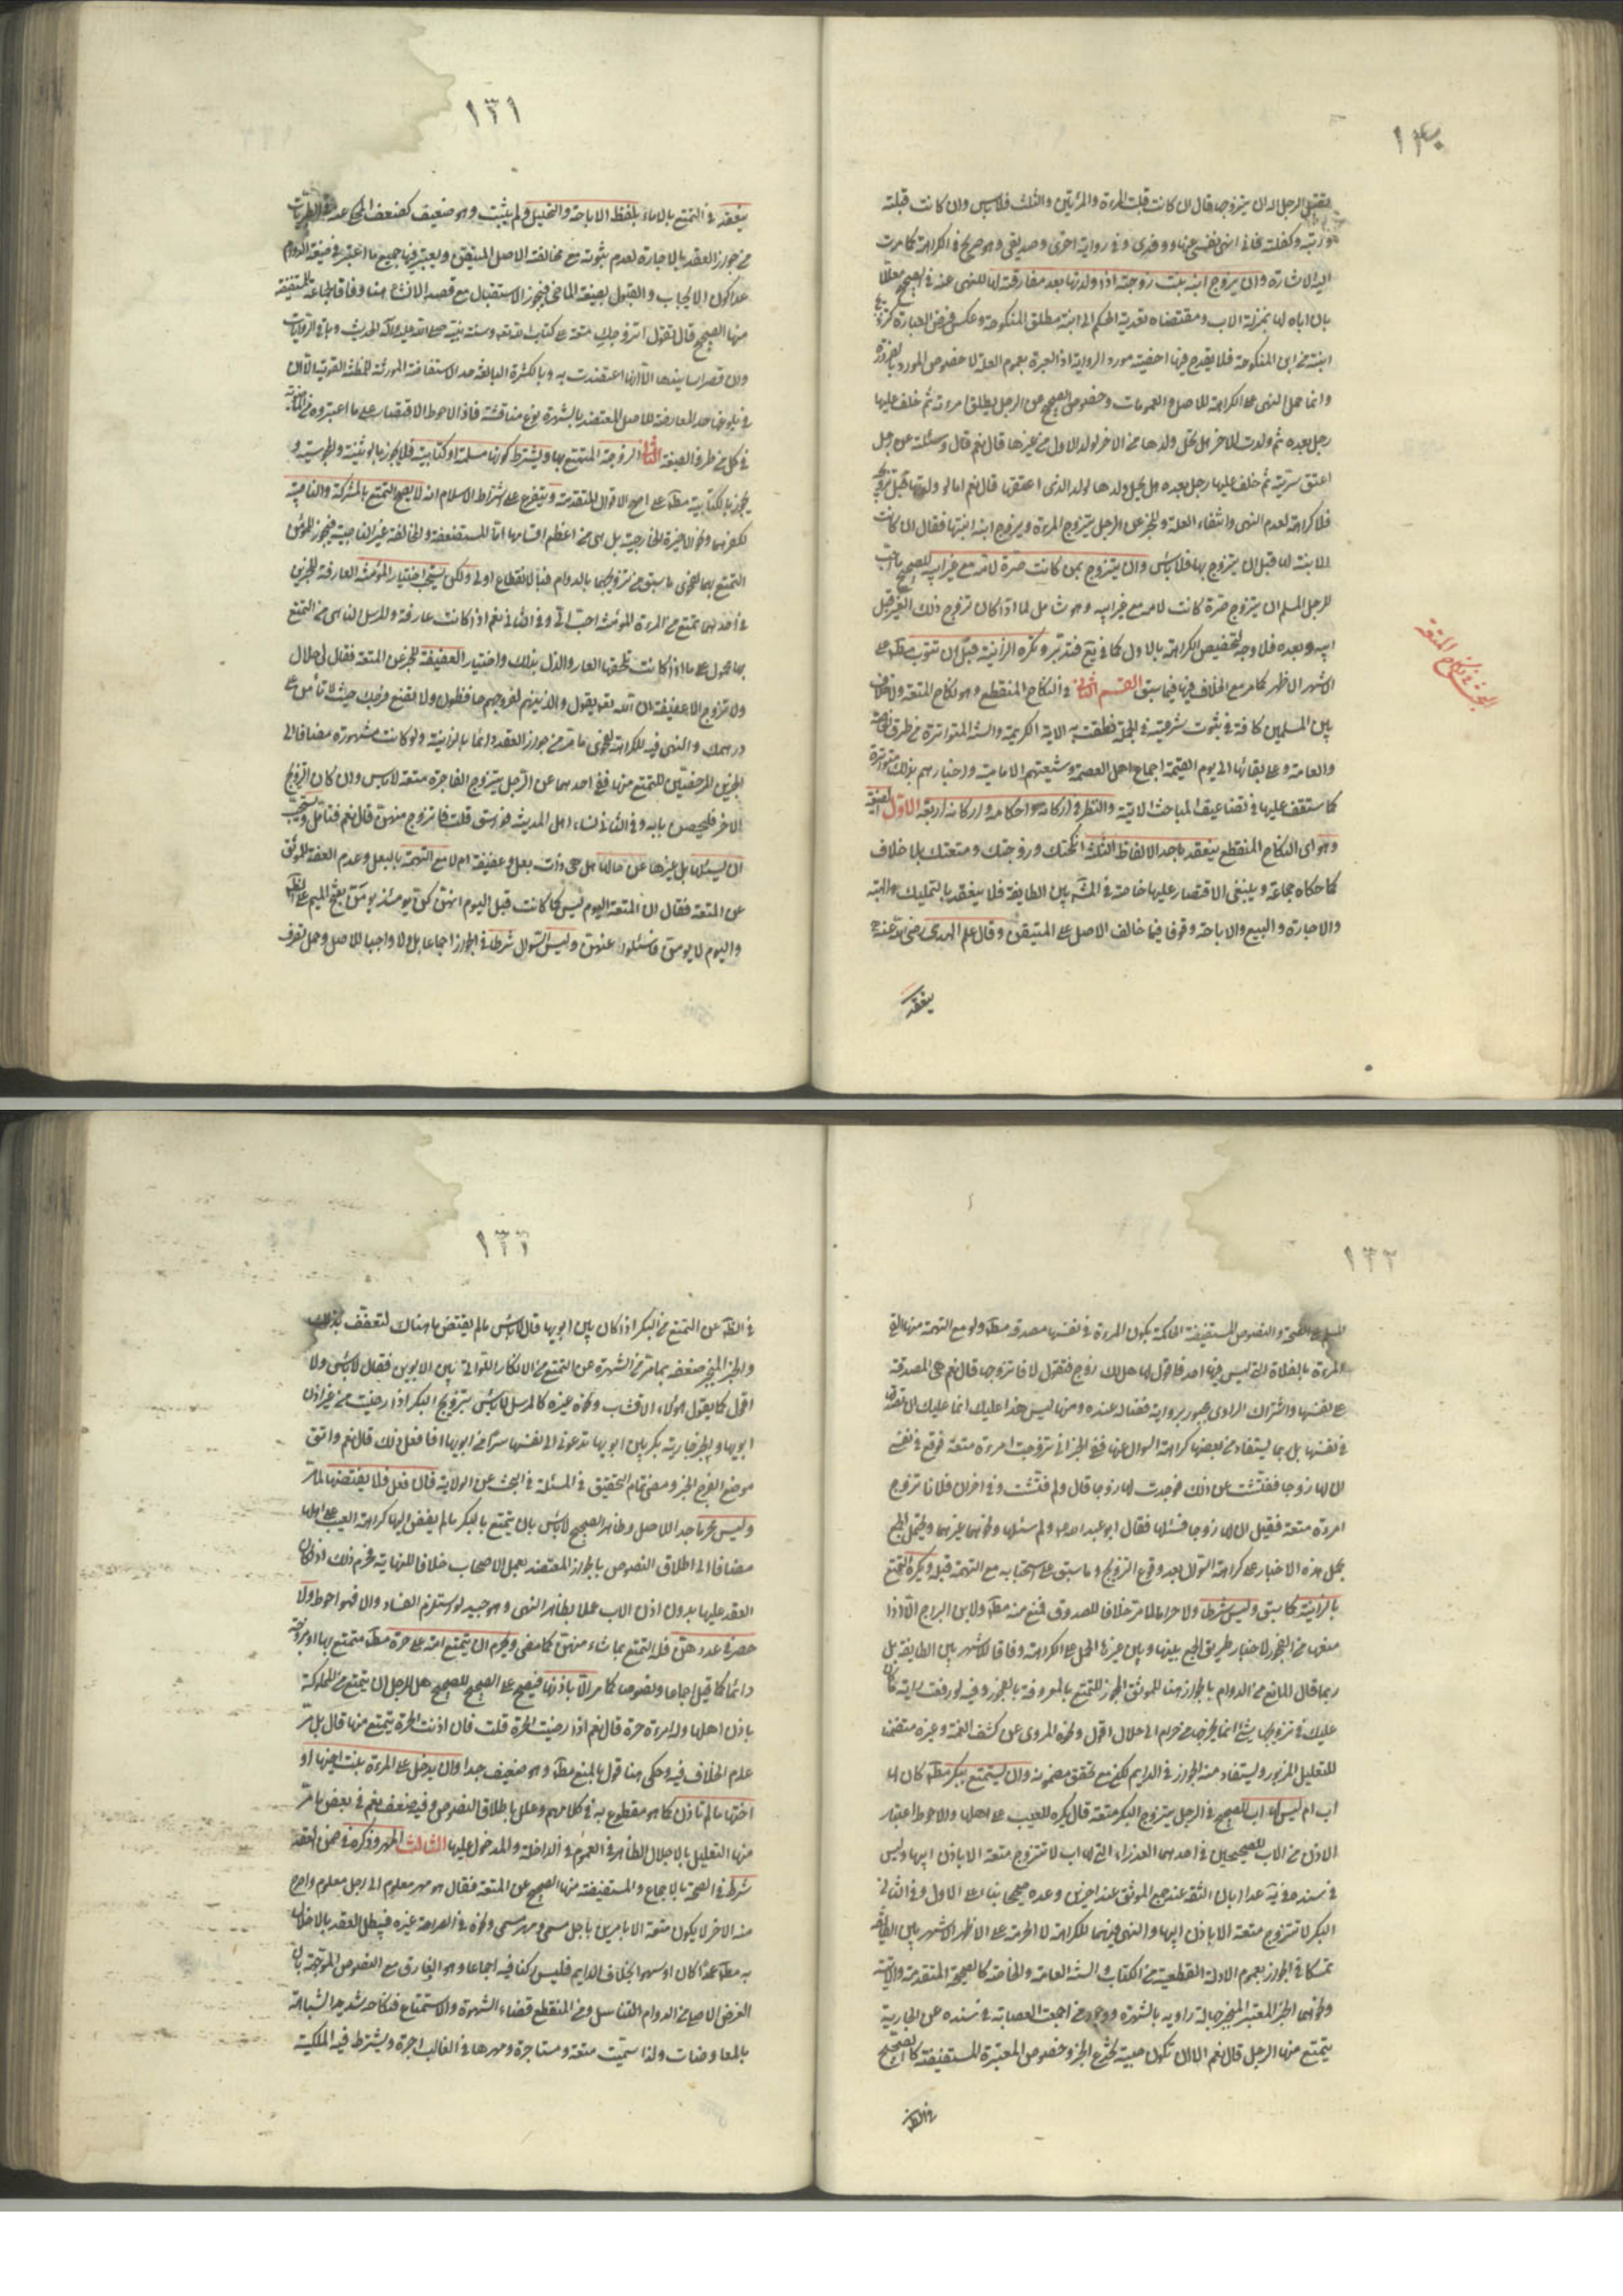 ١٣٠
الرجل له ان يتزوجها قال ان كانت قبلت المرءة والمرتين والثلث فلا باس وان كانت قبلته
وربته وكفلته فاني انهى نفسي عنها وولدي وفي رواية اخرى وصديقي وهو صريح في الكراهة كما مرت
اليه الاشارة وان يزوج ابنه بنت زوجته اذا ولدتها بعد مفارقته لها للنهي عنه في الصحيح معللا
بان اباه لها بمنزلة الاب ومقتضاه تعدية الحكم الى ابنة مطلق المنكوحة وعكس فرض العبارة
ابنة من ابن المنكوحة فلا يقدح فيها اخصية مورد الرواية اذ العبرة بعموم العلة لا خصوص المورد
وانما حمل النهي على الكراهة للاصل والعمومات وخصوص الصحيح عن الرجل يطلق امرءته ثم خلف عليها
رجل بعده ثم ولدت للاخر هل يحل ولدها من الاخر لولد الاول من غيرها قال نعم قال وسئلته عن رجل
اعتق سرية ثم خلف عليها رجل بعده هل يحل ولدها لولد الذي اعتقها قال نعم اما لو ولدتها قبل
فلا كراهة لعدم النهي وانتفاء العلة وللخبر عن الرجل يتزوج المرءة ويزوج ابنه ابنتها فقال ان كانت
الابنة لها قبل ان يتزوج بها فلا باس وان يتزوج بمن كانت ضرة لامه مع غير ابيه للصحيح ما احب
للرجل المسلم ان يتزوج ضرة كانت لامه مع غير ابيه وهو شامل لما اذا كان تزوج ذلك الغير قبل
ابيه وبعده فلا وجه لتخصيص الكراهة بالاول كما في يع فتدبر وتكره الزانية قبل ان تتوب مط على
الاشهر الاظهر كما مر مع الخلاف فيها فيما سبق القسم الثاني في النكاح المنقطع وهو نكاح المتعة ولا خلاف
بين المسلمين كافة في ثبوت شرعيته في الجملة نطقت به الاية الكريمة والسنة المتواترة من طرق
والعامة وعلى بقائها الى يوم القيمة اجماع اهل العصمة وشيعتهم الامامية واخبارهم بذلك متواترة
كما ستقف عليها في تضاعيف المباحث الاتية والنظر في اركانه واحكامه واركانه اربعة الاول الصيغة
وهو اي النكاح المنقطع ينعقد باحد الالفاظ الثلثة انكحتك وزوجتك ومتعتك بلا خلاف
كما حكاه جماعة وينبغي الاقتصار عليها خاصة في المش بين الطايفة فلا ينعقد بالتمليك والهبة
والاجارة والبيع والاباحة وقوفا فيما خالف الاصل على المتيقن وقال علم الهدى رضي الله عنه
ينعقد
في نكاح المتعة
١٣١
ينعقد في التمتع بالاماء بلفظ الاباحة والتحليل ولم يثبت وهو ضعيف كضعف المحكي عنه
من جواز العقد بالاجارة لعدم ثبوته مع مخالفته الاصل المتيقن ويعتبر فيها جميع ما اعتبر في صيغة الدوام
عدا كون الايجاب والقبول بصيغة الماضي فيجوز الاستقبال مع قصد الانشاء هنا وفاقا لجماعة للمستفيضة
منها الصحيح قال تقول اتزوجك متعة على كتاب الله وسنة نبيه صلى الله عليه وآله الحديث وباقي الروايات
وان قصر اسانيدها الا انها اعتضدت به وبالكثرة البالغة حد الاستفاضة المورثة للمظنة القوية الا ان
في بلوغها حد المعارضة للاصل المعتضد بالشهرة نوع مناقشة فاذا الاحوط الاقتصار على ما اعتبروه من
في كل من طرفي الصيغة الثاني الزوجة المتمتع بها ويشترط كونها مسلمة او كتابية فلا يجوز بالوثنية والمجوسية و
يجوز بالكتابية مط على اصح الاقوال المتقدمة ويتفرع على اشتراط الاسلام انه لا يصح التمتع بالمشركة والناصبة
لكفرهما ونحو الاخيرة الخارجية بل هي من اعظم اقسامها اما المستضعفة والمخالفة غير الناصبية فيجوز للمؤمن
التمتع بهما لفحوى ما سبق من تزويجهما بالدوام فبالانقطاع اولى ولكن يستحب اختيار المؤمنة العارفة للخبرين
في احدهما تمتع من المرءة المؤمنة احب الي وفي الثاني نعم اذا كانت عارفة والمرسل الناهي من التمتع
بها محمول على ما اذا كانت يلحقها العار والذل بذلك واختيار العفيفة للخبر عن المتعة فقال لي حلال
ولا تزوج الا عفيفة ان الله تعالى يقول والذين هم لفروجهم حافظون ولا تضع فرجك حيث لا تأمن على
درهمك والنهي فيه للكراهة لفحوى ما مر من جواز العقد دائما بالزانية ولو كانت مشهورة مضافا الى
الخبرين المرخصين للتمتع منها ففي احدهما عن الرجل يتزوج الفاجرة متعة لا باس وان كان التزويج
الاخر فليحصن بابه وفي الثاني نساء اهل المدينة فواسق قلت فاتزوج منهن قال نعم فتامل ويستحب
ان يسئلها بل غيرها عن حالها هل هي ذات بعل وعفيفة ام لا مع التهمة بالبعل وعدم العفة للموثق
عن المتعة فقال ان المتعة اليوم ليس كما كانت قبل اليوم انهن كن يومئذ يومن بفتح الميم على
واليوم لا يومن فاسئلوا عنهن وليس السؤال شرطا في الجواز اجماعا بل ولا واجبا للاصل وحمل تصرف
١٣٢
المسلم على الصحة والنصوص المستفيضة الحاكمة بكون المرءة في نفسها مصدقة مط ولو مع التهمة منها القى
المرءة بالفلاة التي ليس فيها احد فاقول لها هل لك زوج فتقول لا فاتزوجها قال نعم هي المصدقة
على نفسها واشتراك الراوي مجبور برواية فضاله عنده ومنها ليس هذا عليك انما عليك ان تصدقها
في نفسها بل ربما يستفاد من بعضها كراهة السؤال عنها ففي الخبر اني تزوجت امرءة متعة فوقع في نفسي
ان لها زوجا ففتشت عن ذلك فوجدت لها زوجا قال ولم فتشت وفي اخر ان فلانا تزوج
امرءة متعة فقيل ان لها زوجا فسئلها فقال ابو عبد الله ولم سئلها ونحوهما غيرهما ويحتمل الجمع
بحمل هذه الاخبار على كراهة السؤال بعد وقوع التزويج وما سبق على استحبابه مع التهمة قبله ويكره التمتع
بالزانية كما سبق وليس شرطا ولا حراما لما مر خلافا للصدوق فمنع منه مط ولابن البراج الا اذا
منعها من الفجور لاخبار طريق الجمع بينها وبين غيرها الحمل على الكراهة وفاقا للاشهر بين الطايفة بل
ربما قال المانع من الدوام بالجواز هنا للموثق المجوز للتمتع بالمعروفة بالفجور وفيه لو رفعت راية ما كان
عليك في تزويجها شيء انما يخرجها من حرام الى حلال اقول ونحوه المروي عن كشف الغمة وغيره متضمنا
للتعليل المزبور ويستفاد منه الجواز في الدايم لكن مع تحقق مضمونه وان يستمتع ببكر مط كان لها
اب ام ليس لها اب للصحيح في الرجل يتزوج البكر متعة قال يكره للعيب على اهلها والاحوط اعتبار
الاذن من الاب للصحيحين في احدهما العذراء التي لها اب لا تتزوج متعة الا باذن ابيها وليس
في سنده من فيه عدا ابان الثقة عند جمع الموثق عند اخرين وعده صحيحا بناء على الاول وفي الثاني
البكر لا تتزوج متعة الا باذن ابيها والنهي فيهما للكراهة لا الحرمة على الاظهر الاشهر بين الطايفة
تمسكا في الجواز بعموم الادلة القطعية من الكتاب والسنة العامة والخاصة كالصحيحة المتقدمة والاتية
ونحوهما الخبر المعتبر المنجبر جهالة راويه بالشهرة ووجود من اجمعت العصابة في سنده عن الجارية
يتمتع منها الرجل قال نعم الا ان تكون صبية تخدع الخبر وخصوص المعتبرة المستفيضة كالصحيح
في
١٣٣
في عن التمتع من البكر اذا كان بين ابويها قال لا باس ما لم يفتض ما هناك لتعفف بذلك
والخبر المنجبر ضعفه بما مر من الشهرة عن التمتع من الابكار اللواتي بين الابوين فقال لا باس ولا
اقول كما يقول هؤلاء الاقشاب ونحوه غيره كالمرسل لا باس بتزويج البكر اذا رضيت من غير اذن
ابويها والخبر جارية بكر بين ابويها تدعوني الى نفسها سرا من ابويها افافعل ذلك قال نعم واتق
موضع الفرج الخبر ومضى تمام التحقيق في المسئلة في البحث عن الولاية فان فعل فلا يفتضها لما مر
وليس محرما جدا للاصل وظاهر الصحيح لا باس بان يتمتع بالبكر ما لم يفض اليها كراهة العيب على اهلها
مضافا الى اطلاق النصوص بالجواز المعتضد بعمل الاصحاب خلافا للنهاية فحرم ذلك اذا كان
العقد عليها بدون اذن الاب عملا بظاهر النهي وهو جيد لو استلزم الفساد والا فهو احوط ولا
حصر في عددهن فله التمتع بما شاء منهن كما مضى ويحرم ان يتمتع امة على حرة مط متمتع بها او مزوجة
دائما كما قيل اجماعا ونصوصا كما مر الا باذنها فيصح على الصحيح للصحيح هل للرجل ان يتمتع من المملوكة
باذن اهلها وله امرءة حرة قال نعم اذا رضيت الحرة قلت فان اذنت الحرة يتمتع منها قال بل مر
عدم الخلاف فيه وحكى هنا قول بالمنع مط وهو ضعيف جدا وان يدخل على المرءة بنت اخيها او
اختها ما لم تاذن كما هو مقطوع به في كلامهم وعلل باطلاق النصوص وفيه ضعف نعم في بعض ما مر
منها التعليل بالاجلال الظاهر في العموم في الداخلة والمدخول عليها الثالث المهر وذكره في ضمن العقد
شرط في الصحة بالاجماع والمستفيضة منها الصحيح عن المتعة فقال هو مهر معلوم الى اجل معلوم واصرح
منه الاخر لا يكون متعة الا بامرين باجل مسمى ومهر مسمى ونحوه في الصراحة غيره فيبطل العقد بالاخلال
به مط عمدا كان او سهوا بخلاف الدايم فليس ركنا فيه اجماعا وهو الفارق مع النصوص الموجهة بان
الغرض الاصلي من الدوام التناسل ومن المنقطع قضاء الشهوة والاستمتاع فنكاحه شديد الشباهة
بالمعاوضات ولذا سميت متعة ومستاجرة ومهرها في الغالب اجرة ويشترط فيه الملكية